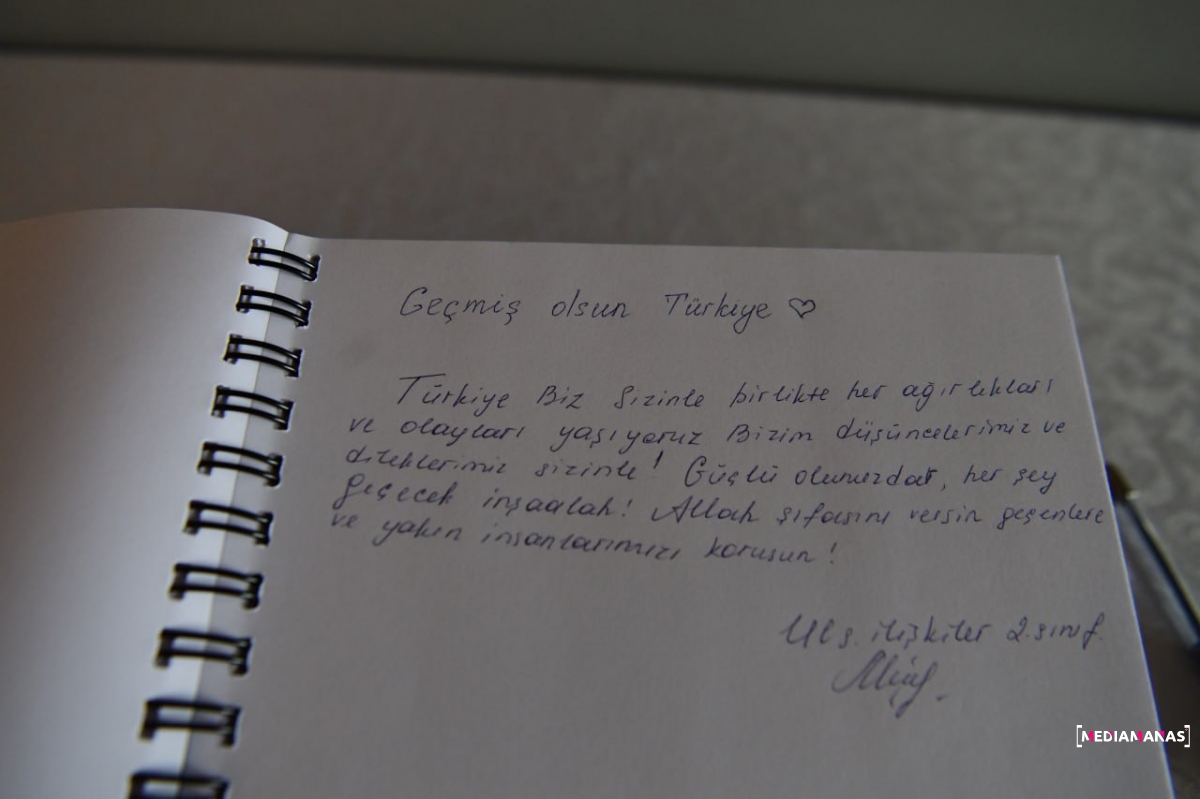 Geçmiş olsun Türkiye ♡
Türkiye Biz Sizinle birlikte her ağırlıkları
ve olayları yaşıyoruz Bizim düşüncelerimiz ve
dileklerimiz sizinle! Güçlü olunuzdar, her şey
geçecek inşaalah! Allah şifasını versin geçenlere
ve yakın insanlarımızı korusun!
Uls. ilişkiler 2.sınıf.
[MEDIAMANAS]